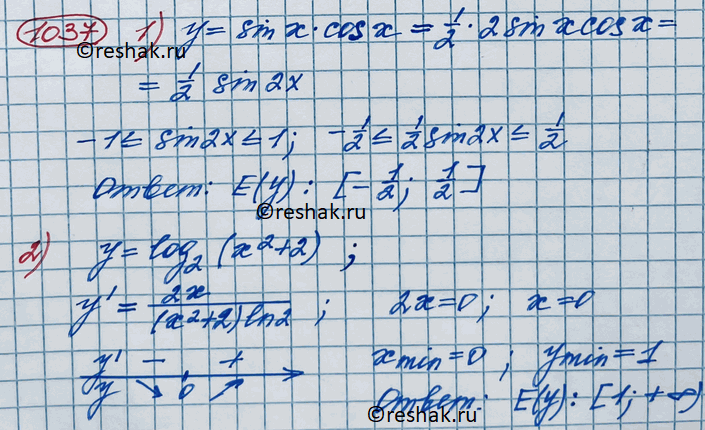 1037 1) y = sin x · cos x = 1/2 · 2 sin x cos x =
©reshak.ru
= 1/2 sin 2x
-1 ≤ sin 2x ≤ 1; -1/2 ≤ 1/2 sin 2x ≤ 1/2
Ответ: E(y): [-1/2; 1/2]
©reshak.ru
2) y = log₂ (x²+2) ;
y' = 2x/((x²+2) ln 2) ; 2x=0; x=0
y' − + xmin=0 ; ymin=1
y ↘ 0 ↗ Ответ: E(y): [1; +∞)
©reshak.ru